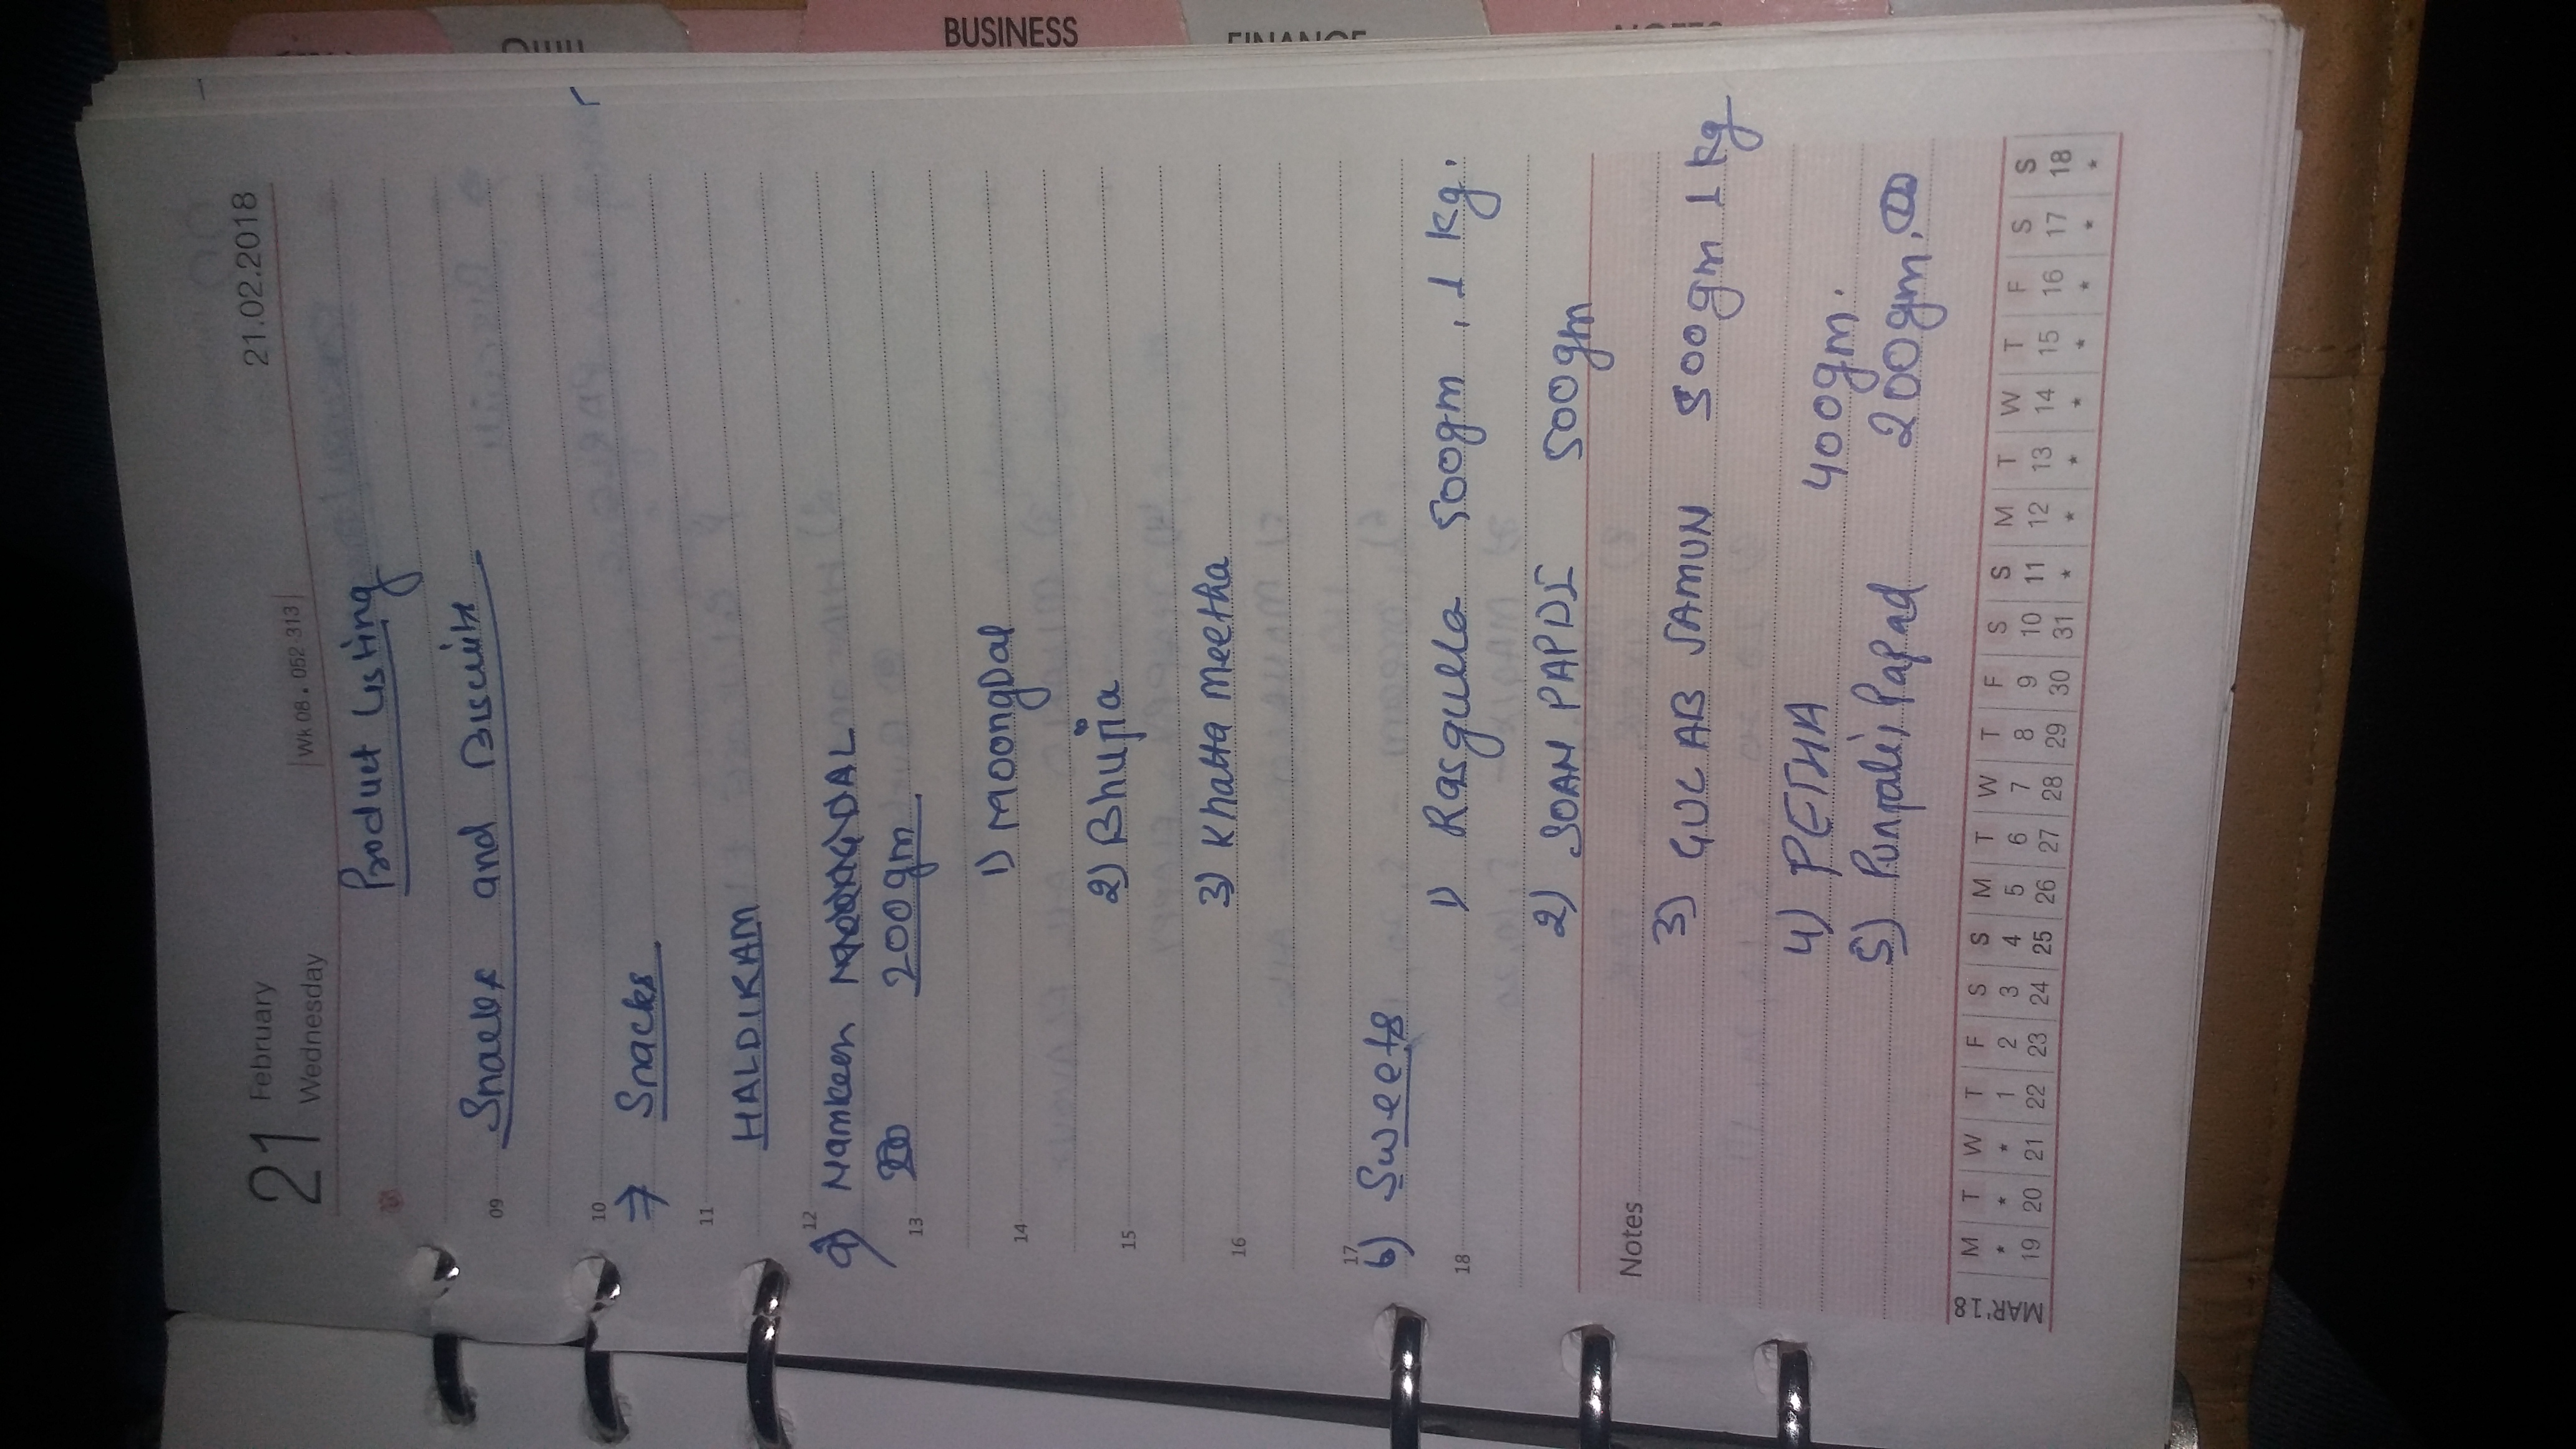 21 February 21.02.2018
Wednesday Wk 08 . 052-313
Product Listing
09 Snacks and Biscuits
10
⇒ Snacks
11
HALDIRAM
12
a) Namkeen MOONGDAL
13 200gm
1) MoongDal
14
2) Bhujia
15
3) Khatta Meetha
16
17
b) Sweets
18 1) Rasgulla 500gm , 1 Kg.
2) SOAN PAPDI 500gm
Notes
3) GULAB JAMUN 500gm 1 Kg
4) PETHA 400gm.
5) Punjabi Papad 200gm.
MAR'18
M T W T F S S M T W T F S S M T W T F S S
* * * 1 2 3 4 5 6 7 8 9 10 11 12 13 14 15 16 17 18
19 20 21 22 23 24 25 26 27 28 29 30 31 * * * * * * * *
BUSINESS
FINANCE